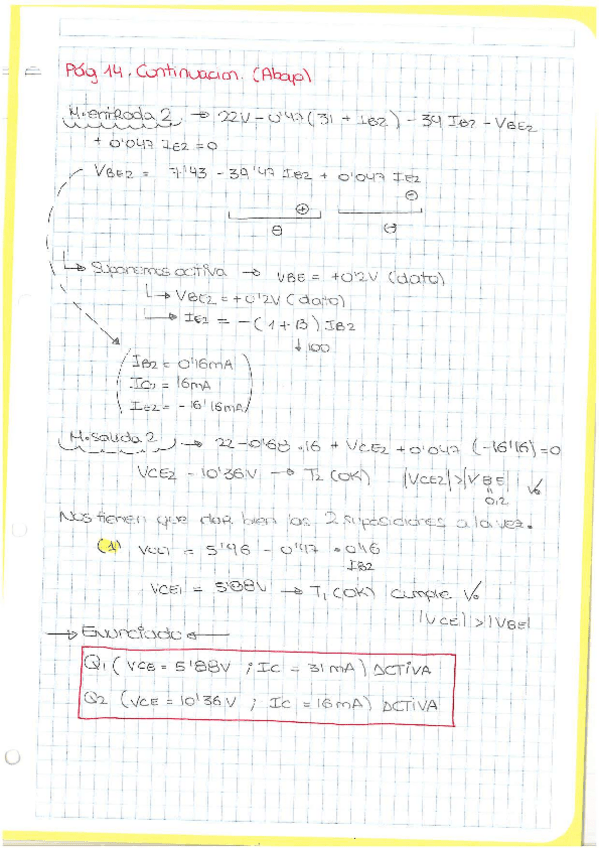 Pág 14. Continuacion. (Abajo)
M. entrada 2 → 22V - 0'47 (31 + IB2) - 39 IB2 - VBE2
+ 0'047 IE2 = 0
VBE2 = 7'43 - 39'47 IB2 + 0'047 IE2
⊖
⊕
⊖ ⊖
↳ Suponemos activa → VBE = +0'2V (dato)
↳ VBE2 = +0'2V (dato)
→ IE2 = -(1+B) IB2
↓ 100
IB2 = 0'16mA
IC2 = 16mA
IE2 = -16'16mA
M. salida 2 → 22 - 0'68 · 16 + VCE2 + 0'047 (-16'16) = 0
VCE2 - 10'36V → T2 (OK) |VCE2| > |VBE|
0,2
Nos tienen que dar bien las 2 suposiciones a la vez.
(1) VCE1 = 5'96 - 0'47 · 0'16
IB2
VCE1 = 5'88V → T1 (OK) cumple
|VCE| > |VBE|
→ Enunciado ←
Q1 (VCE = 5'88V ; IC = 31mA) ACTIVA
Q2 (VCE = 10'36V ; IC = 16mA) ACTIVA